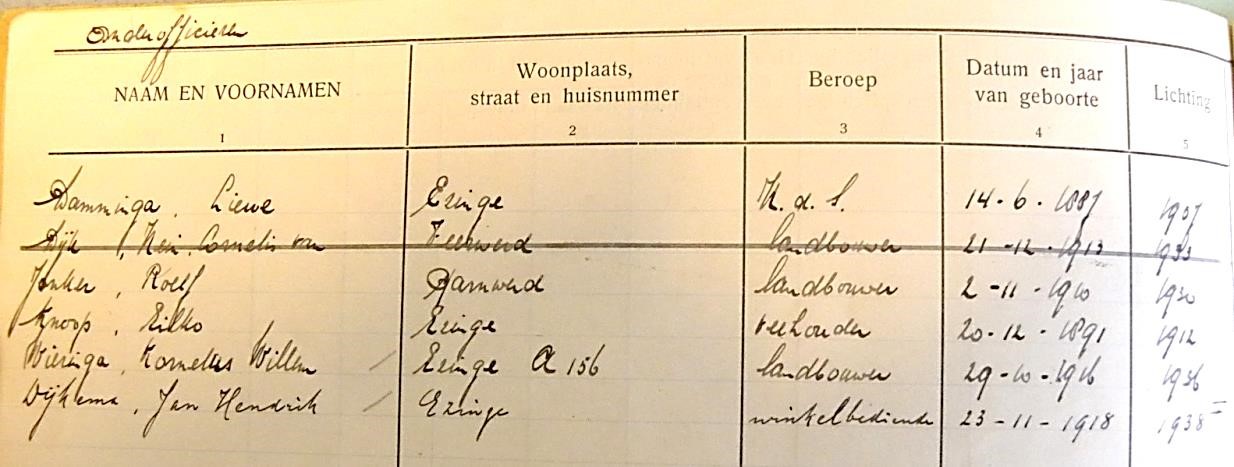 Onderofficieren
NAAM EN VOORNAMEN Woonplaats, straat en huisnummer Beroep Datum en jaar van geboorte Lichting
1 2 3 4 5
Hamminga, Liewe Ezinge H. d. S. 14-6-1887 1907
Dijk, Cornelis van Feerwerd landbouwer 21-12-1913 1933
Jonker, Roelf Garnwerd landbouwer 2-11-1910 1930
Knoop, Eilko Ezinge veehouder 20-12-1891 1912
Wieringa, Kornelus Willem Ezinge A 156 landbouwer 29-10-1916 1936
Dijkema, Jan Hendrik Ezinge winkelbediende 23-11-1918 1938